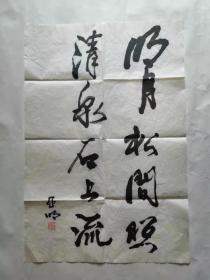 明月松間照
清泉石上流
亚明